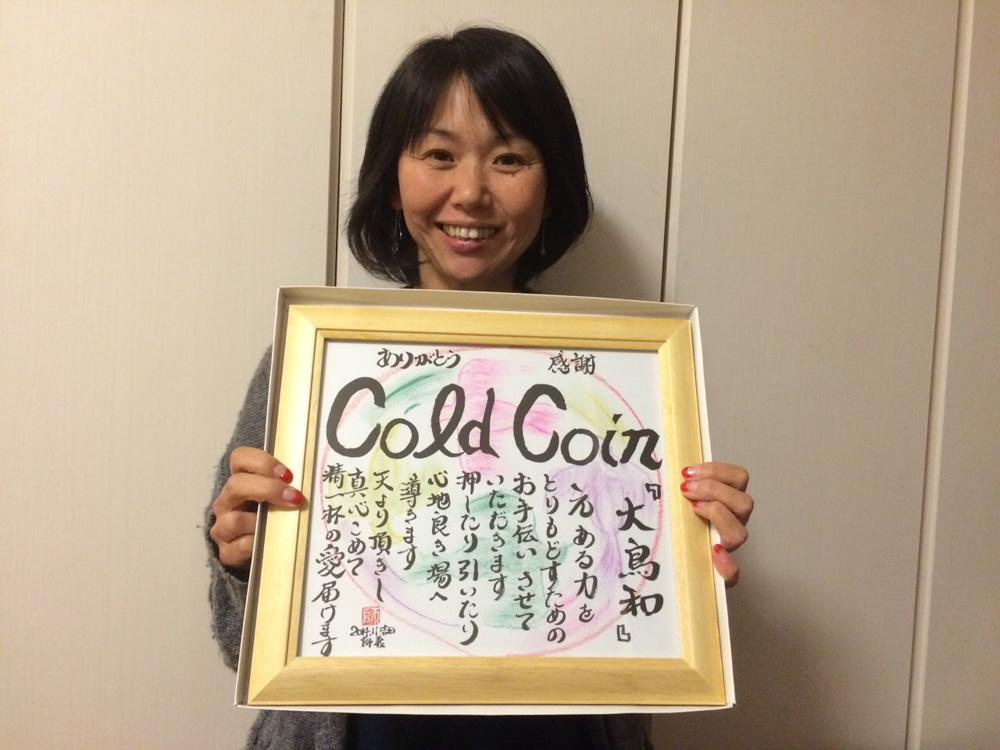 ありがとう
感謝
Cold Coin
『大鳥和』
元ある力を
とりもどすための
お手伝いさせて
いただきます
押したり引いたり
心地良き場へ
導きます
天より頂きし
真心こめて
精一杯の愛届けます